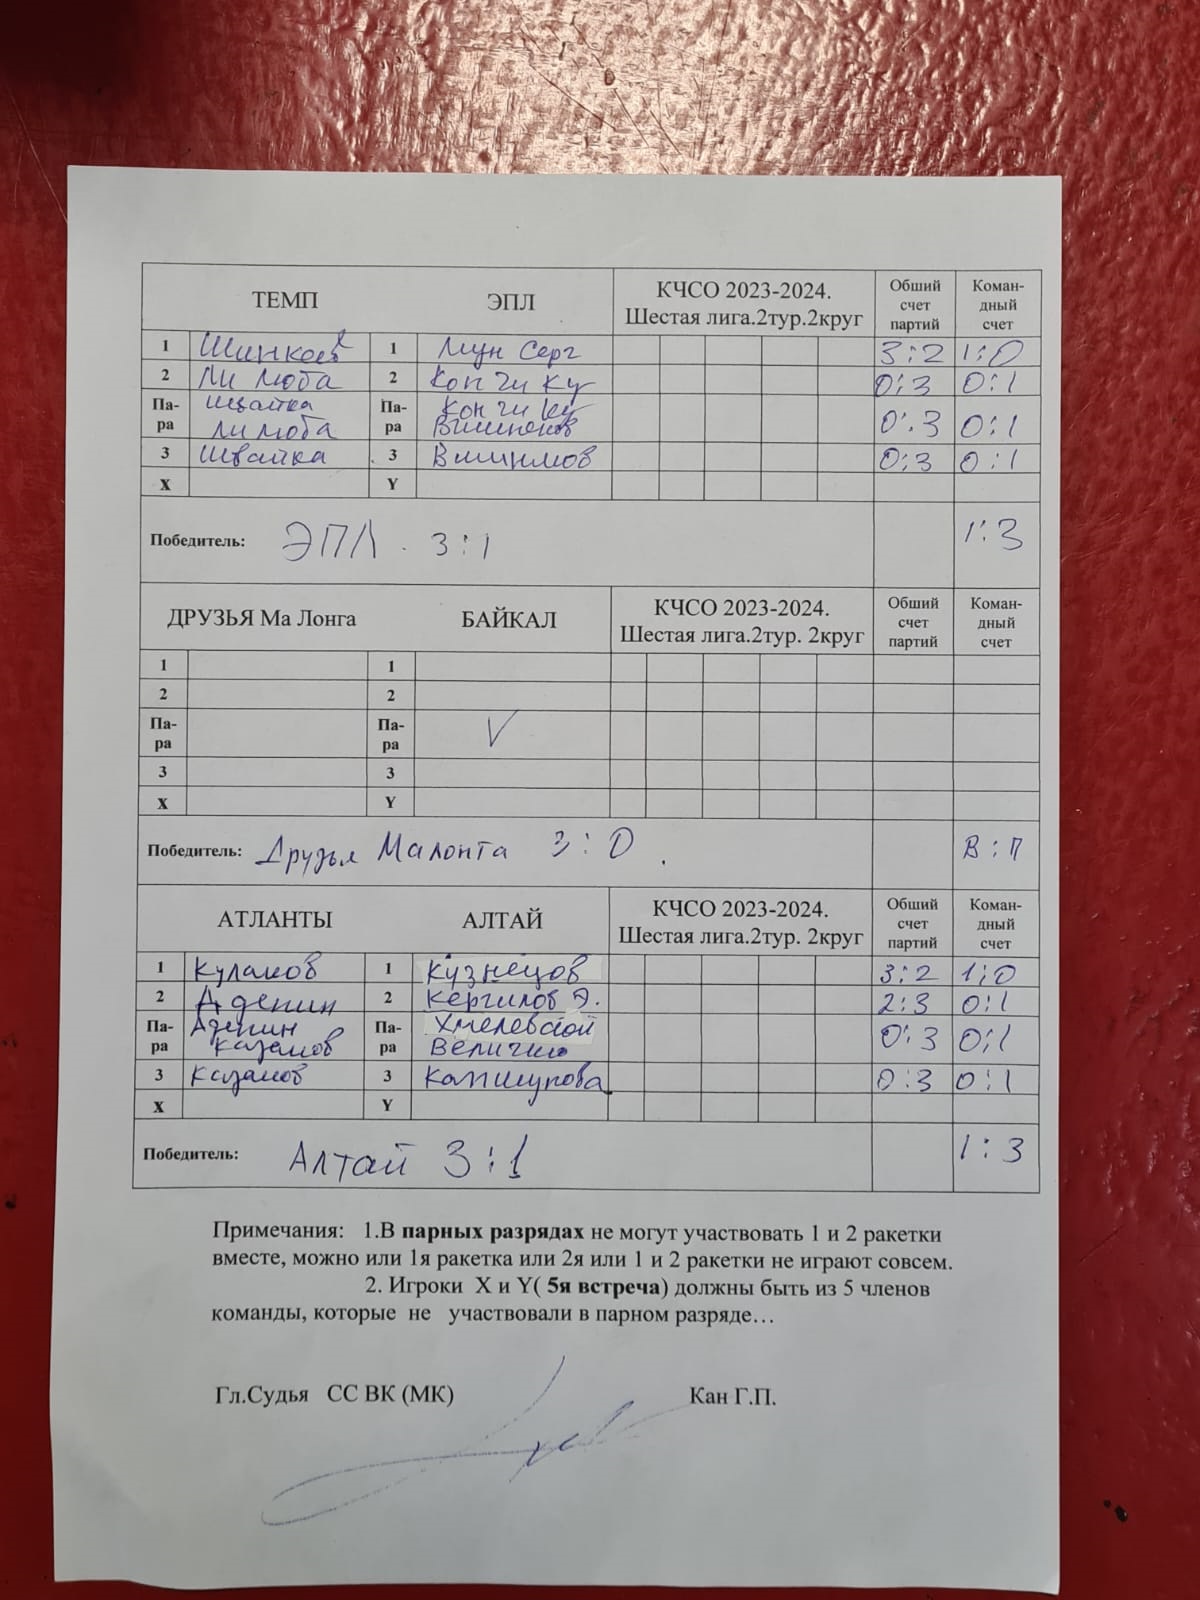 ТЕМП ЭПЛ КЧСО 2023-2024. Шестая лига.2тур.2круг Обший счет партий Коман-дный счет
1 1 Мун Серг 3:2 1:0
2 Ли Люба 2 Кон Чи Ку 0:3 0:1
Па-ра Швайка Ли Люба Па-ра Кон Чи Ку 0:3 0:1
3 Швайка 3 0:3 0:1
X Y
Победитель: ЭПЛ. 3:1 1:3
ДРУЗЬЯ Ма Лонга БАЙКАЛ КЧСО 2023-2024. Шестая лига.2тур. 2круг Обший счет партий Коман-дный счет
1 1
2 2
Па-ра Па-ра V
3 3
X Y
Победитель: Друзья Малонга 3:0. В:П
АТЛАНТЫ АЛТАЙ КЧСО 2023-2024. Шестая лига.2тур. 2круг Обший счет партий Коман-дный счет
1 1 Кузнецов 3:2 1:0
2 Аденин 2 Кергилов Э. 2:3 0:1
Па-ра Аденин Казаков Па-ра Хмелевской Величко 0:3 0:1
3 Казаков 3 0:3 0:1
X Y
Победитель: Алтай 3:1 1:3
Примечания: 1.В парных разрядах не могут участвовать 1 и 2 ракетки
вместе, можно или 1я ракетка или 2я или 1 и 2 ракетки не играют совсем.
2. Игроки X и Y( 5я встреча) должны быть из 5 членов
команды, которые не участвовали в парном разряде…
Гл.Судья СС ВК (МК) Кан Г.П.